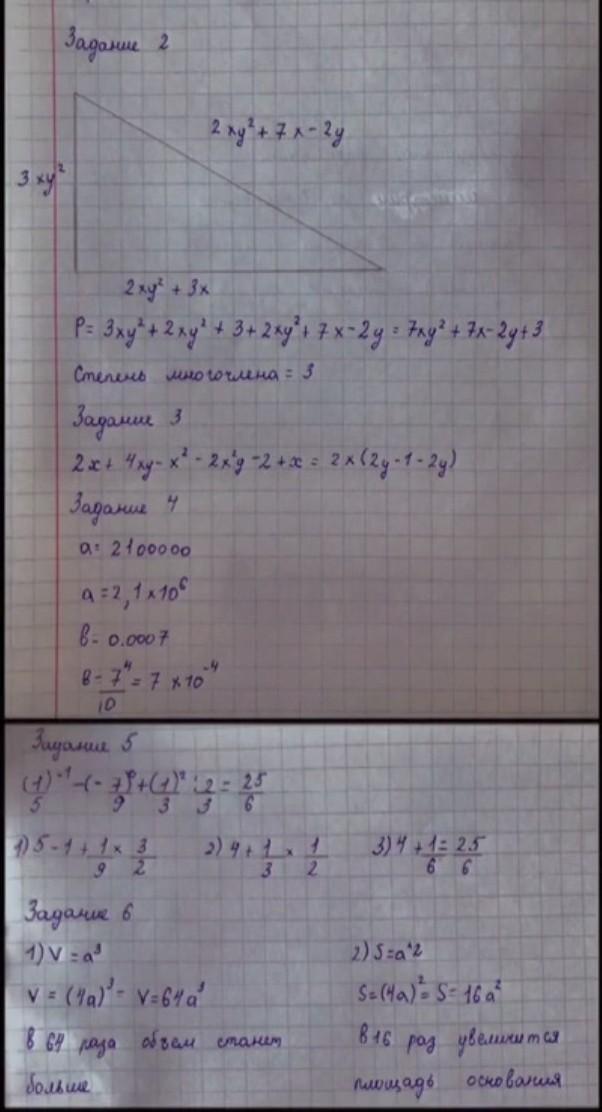 Задание 2
2xy² + 7x - 2y
3xy²
2xy² + 3x
P = 3xy² + 2xy² + 3 + 2xy² + 7x - 2y = 7xy² + 7x - 2y + 3
Степень многочлена = 3
Задание 3
2x + 4xy - x² - 2x²y - 2 + x = 2x(2y - 1 - 2y)
Задание 4
a = 2100000
a = 2,1 × 10⁶
в = 0.0007
в = 7⁴/10 = 7 × 10⁻⁴
Задание 5
(1/5)⁻¹ - (-7/9)⁰ + (1/3)² : 2/3 = 25/6
1) 5 - 1 + 1/9 × 3/2 2) 4 + 1/3 × 1/2 3) 4 + 1/6 = 25/6
Задание 6
1) V = a³ 2) S = a^2
V = (4a)³ = V = 64a³ S = (4a)² = S = 16a²
в 64 раза объем станет в 16 раз увеличится
больше площадь основания